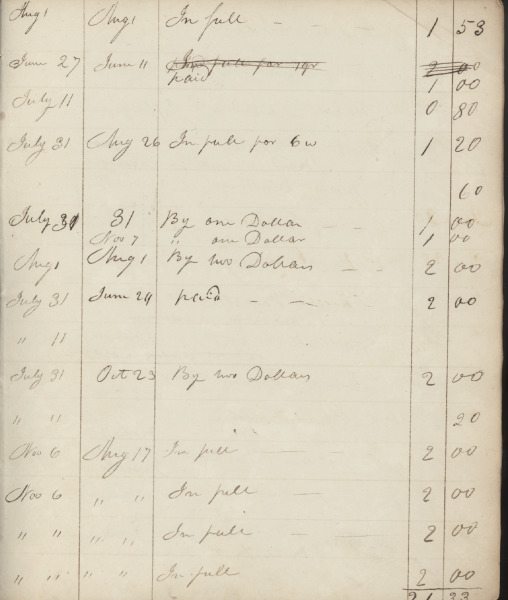 Aug 1 Aug 1 In full - 1 53
June 27 June 11 In full for 1qr 2 00
paid 1 00
July 11 0 80
July 31 Aug 26 In full for 6w 1 20
60
July 31 31 By one Dollar - - 1 00
Nov 7 " one Dollar 1 00
Aug 1 Aug 1 By two Dollars - - 2 00
July 31 June 29 paid - - 2 00
" 11
July 31 Oct 23 By two Dollars 2 00
" " 20
Nov 6 Aug 17 In full - - 2 00
Nov 6 " " In full - 2 00
" " " " In full - 2 00
" " " " In full 2 00
21 33